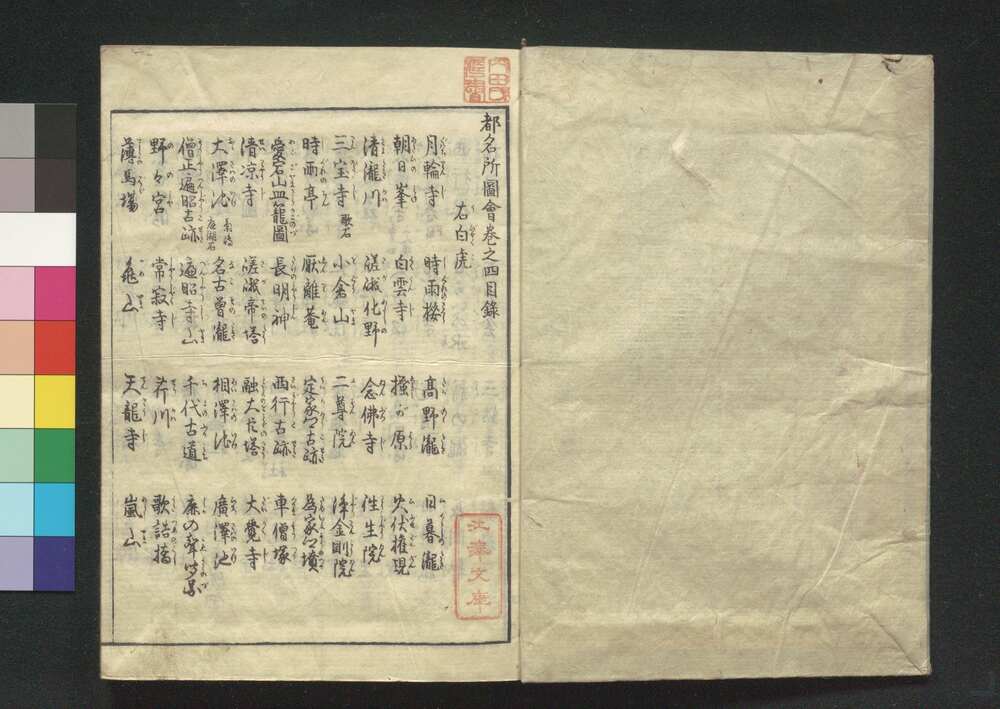 都名所圖會巻之四目録
右白虎
月輪寺 時雨櫻 高野瀧 日暮瀧
朝日峯 白雲寺 樒が原 火伏権現
清瀧川 嵯峨化野 念佛寺 往生院
三宝寺 歌石 小倉山 二尊院 浄金剛院
時雨亭 厭離菴 定家卿古跡 為家卿墳
愛宕山 長明神 西行古跡 車僧塚
清凉寺 嵯峨帝塔 融大臣塔 大覺寺
大澤池 菊嶋 庭湖石 名古曽瀧 相澤池 廣澤池
僧正遍昭古跡 遍昭寺山 千代古道
野々宮 常寂寺 芹川 歌詰橋
薄馬場 亀山 天龍寺 嵐山
江峯文庫